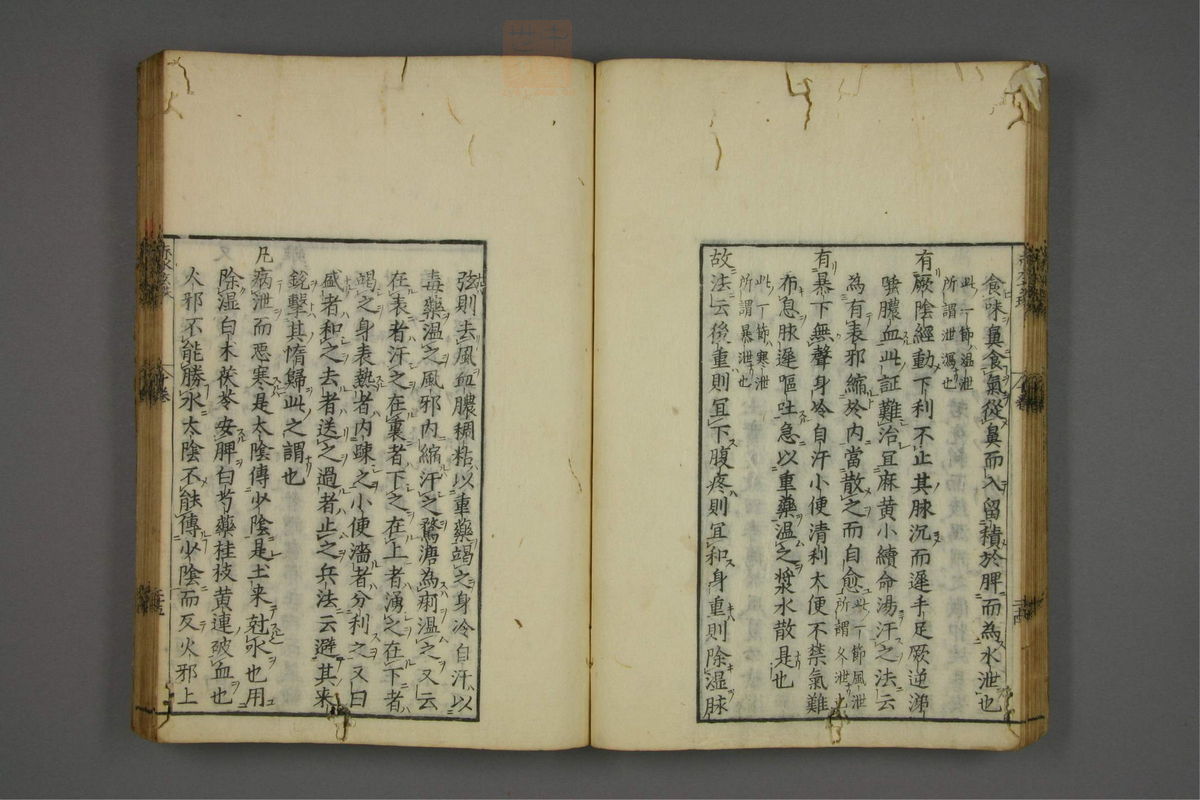 食味鼻食氣從鼻而入留積於脾而為水泄也
此一節溫泄
所謂泄瀉也
有厥陰經動下利不止其脉沉而遲手足厥逆涕
唾膿血此証難治宜麻黄小續命湯汗之法云
為有表邪縮於内當散之而自愈此一節風泄
所謂久泄也
有暴下無聲身冷自汗小便清利大便不禁氣難
布息脉遲嘔吐急以重藥温之漿水散是也
此一節寒泄
所謂暴泄也
故法云後重則宜下腹疼則宜和身重則除湿脉
弦則去風血膿稠粘以重藥竭之身冷自汗以
毒藥温之風邪内縮汗之鶩溏為痢温之又云
在表者汗之在裏者下之在上者湧之在下者
竭之身表熱者内踈之小便濇者分利之又曰
盛者和之去者送之過者止之兵法云避其来
銳擊其惰歸此之謂也
凡病泄而恶寒是太陰傳少陰是土来尅水也用
除湿白木茯苓安脾白芍藥桂枝黄連破血也
火邪不能勝水太陰不能傳少陰而反火邪上